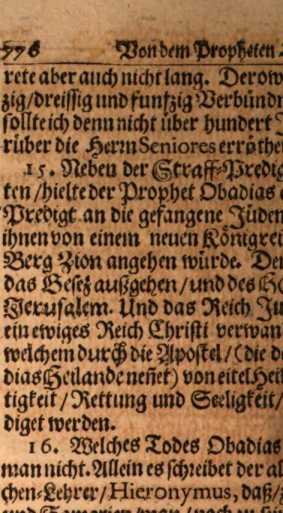 776 Von dem Propheten
rete aber auch nicht lang. Derow
zig/dreissig und funfzig Verbündn
sollte ich denn nicht über hundert J
rüber die Herrn Seniores erröthe
15. Neben der Straff-Predig
ten/hielte der Prophet Obadias
Predigt an die gefangene Jüden
ihnen von einem neuen Königrei
Berg Zion angehen würde. De
das Gesez außgehen/und des H
Jerusalem. Und das Reich Ju
ein ewiges Reich Christi verwan
welchem durch die Apostel/(die d
dias Heilande neñet) von eitel Heil
tigkeit/Rettung und Seeligkeit/
diget werden.
16. Welches Todes Obadias
man nicht. Allein es schreibet der al
chen-Lehrer/Hieronymus, daß/
und Samarien/man/noch zu